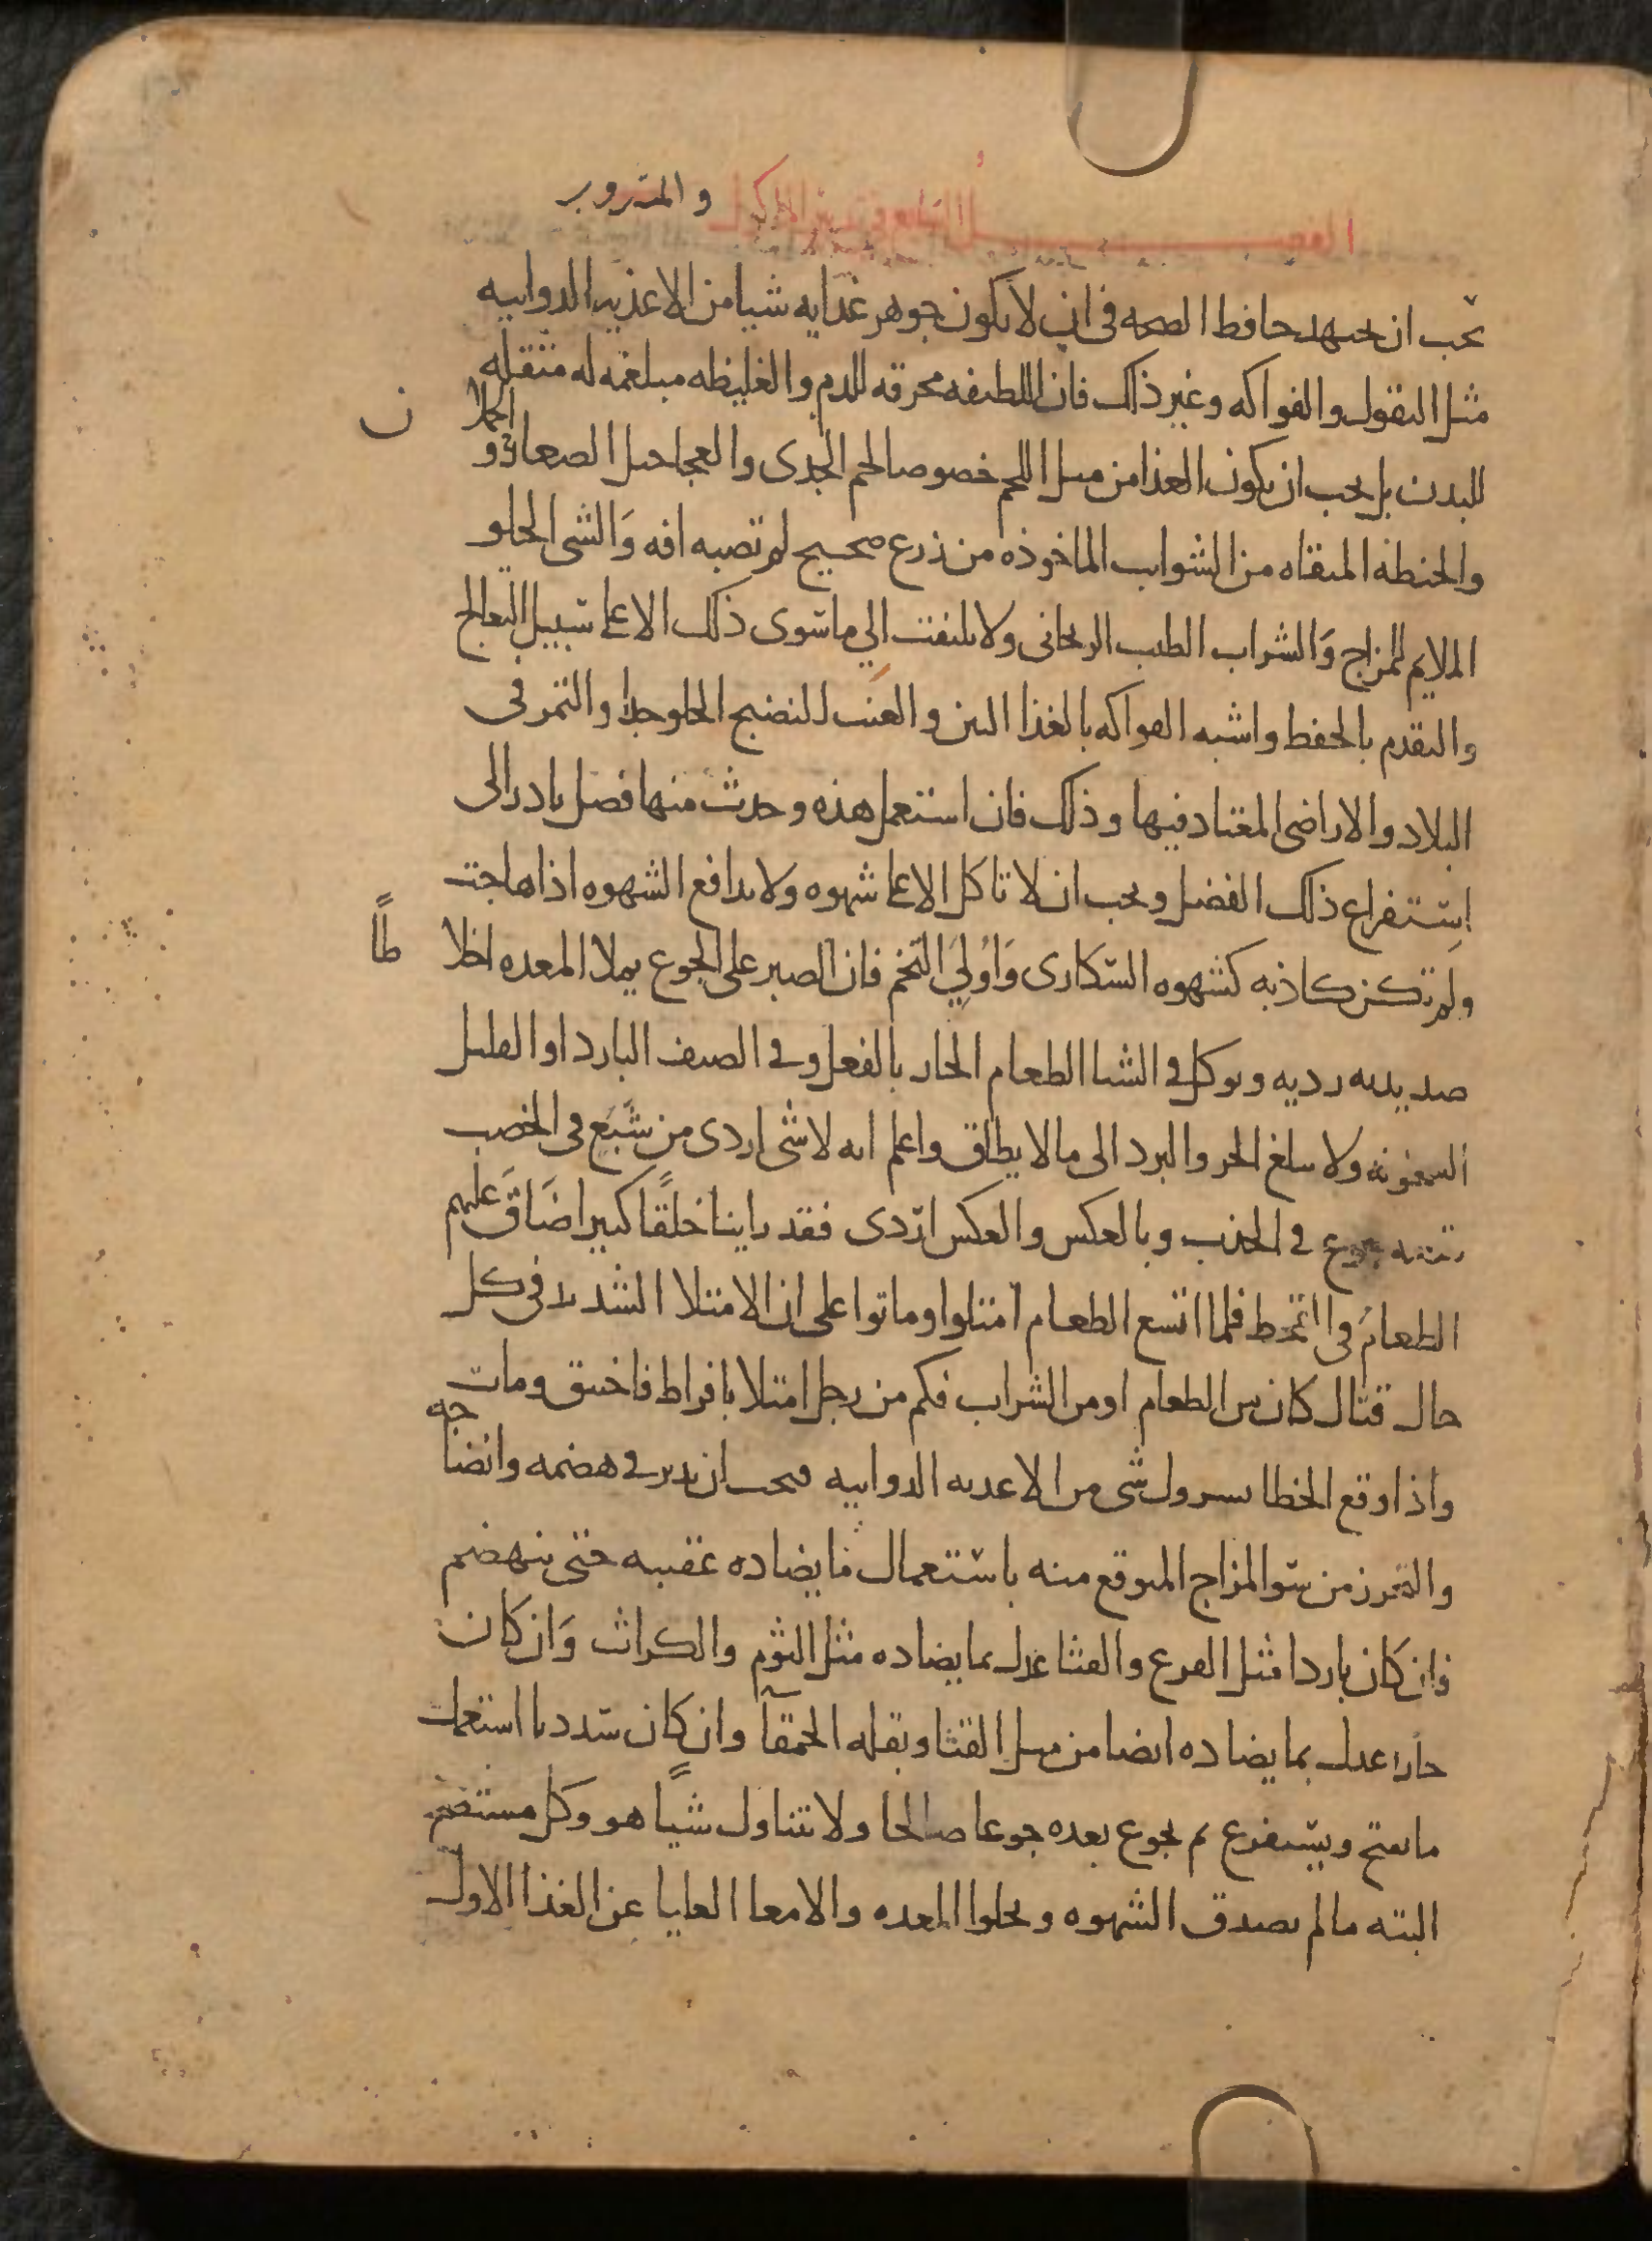 الفصــل السابع في تدبير الماكول والمشروب
يجب ان يجتهد حافظ الصحه في ان لا يكون جوهر غذايه شيا من الاغذيه الدواييه
مثل البقول والفواكه وغير ذلك فان اللطيفه محرقه للدم والغليظه مبلغمه له مثقله
للبدن بل يجب ان يكون الغذا من مثل اللحم خصوصا لحم الجدى والعجاجيل الصغار والحملان
والحنطه المنقاه من الشوايب الماخوذه من زرع صحيح لم تصبه افه وَالشى الحلو
الملايم للمزاج وَالشراب الطيب الريحانى ولا يلتفت الي ما سوى ذلك الا على سبيل التعالج
والتقدم بالحفظ واشبه الفواكه بالغذا التين والعنب النضيج الحلو جدا والتمر في
البلاد والاراضى المعتاد فيها وذلك فان استعمل هذه وحدث منها فضل بادر الى
استفراغ ذلك الفضل ويجب ان لا تاكل الا على شهوه ولا يدافع الشهوه اذا هاجت
ولم تكن كاذبه كشهوه السكارى وَاوُلي التخم فان الصبر على الجوع يملا المعده اخلاطًا
صديديه رديه ويوكل في الشتا الطعام الحار بالفعل وفي الصيف البارد او القليل
السخونه ولا يبلغ الحر والبرد الى ما لا يطاق واعلم انه لا شى اردى من شَبَع في الخصب
يتبعه جوع في الجدب وبالعكس والعكس اردى فقد راينا خلقًا كثيرا ضَاقَ عليهم
الطعامُ في القحط فلما اتسع الطعام امتلوا وماتوا على ان الامتلا الشديد في كل
حال قتال كان من الطعام او من الشراب فكم من رجل امتلا بافراط فاختنق ومات
واذا وقع الخطا بتناول شى من الاغذيه الدواييه فيجب ان يدبر في هضمه وانضاجه
والتحرز من سو المزاج المتوقع منه باستعمال ما يضاده عقيبه حتى ينهضم
فان كان باردا مثل القرع والقثا عدل بما يضاده مثل الثوم والكراث وَان كان
حارا عدل بما يضاده ايضا من مثل القثا وبقله الحمقآ وان كان سدديا استعمل
ما يفتح ويستفرغ ثم يجوع بعده جوعا صالحا ولا يتناول شيًا هو وكل مستصح
البته ما لم تصدق الشهوه وتخلوا المعده والامعا العليا عن الغذا الاول